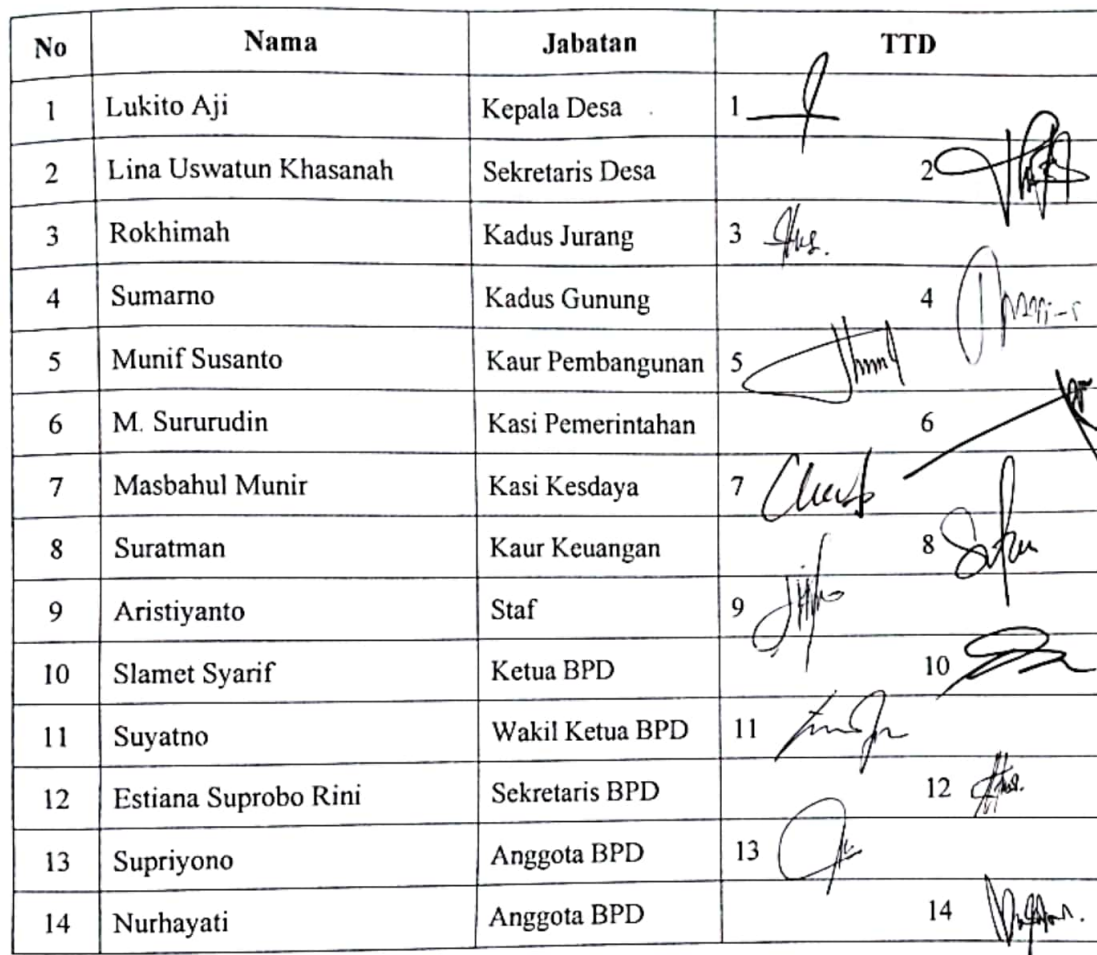 No Nama Jabatan TTD
1 Lukito Aji Kepala Desa 1
2 Lina Uswatun Khasanah Sekretaris Desa 2
3 Rokhimah Kadus Jurang 3
4 Sumarno Kadus Gunung 4
5 Munif Susanto Kaur Pembangunan 5
6 M. Sururudin Kasi Pemerintahan 6
7 Masbahul Munir Kasi Kesdaya 7
8 Suratman Kaur Keuangan 8
9 Aristiyanto Staf 9
10 Slamet Syarif Ketua BPD 10
11 Suyatno Wakil Ketua BPD 11
12 Estiana Suprobo Rini Sekretaris BPD 12
13 Supriyono Anggota BPD 13
14 Nurhayati Anggota BPD 14